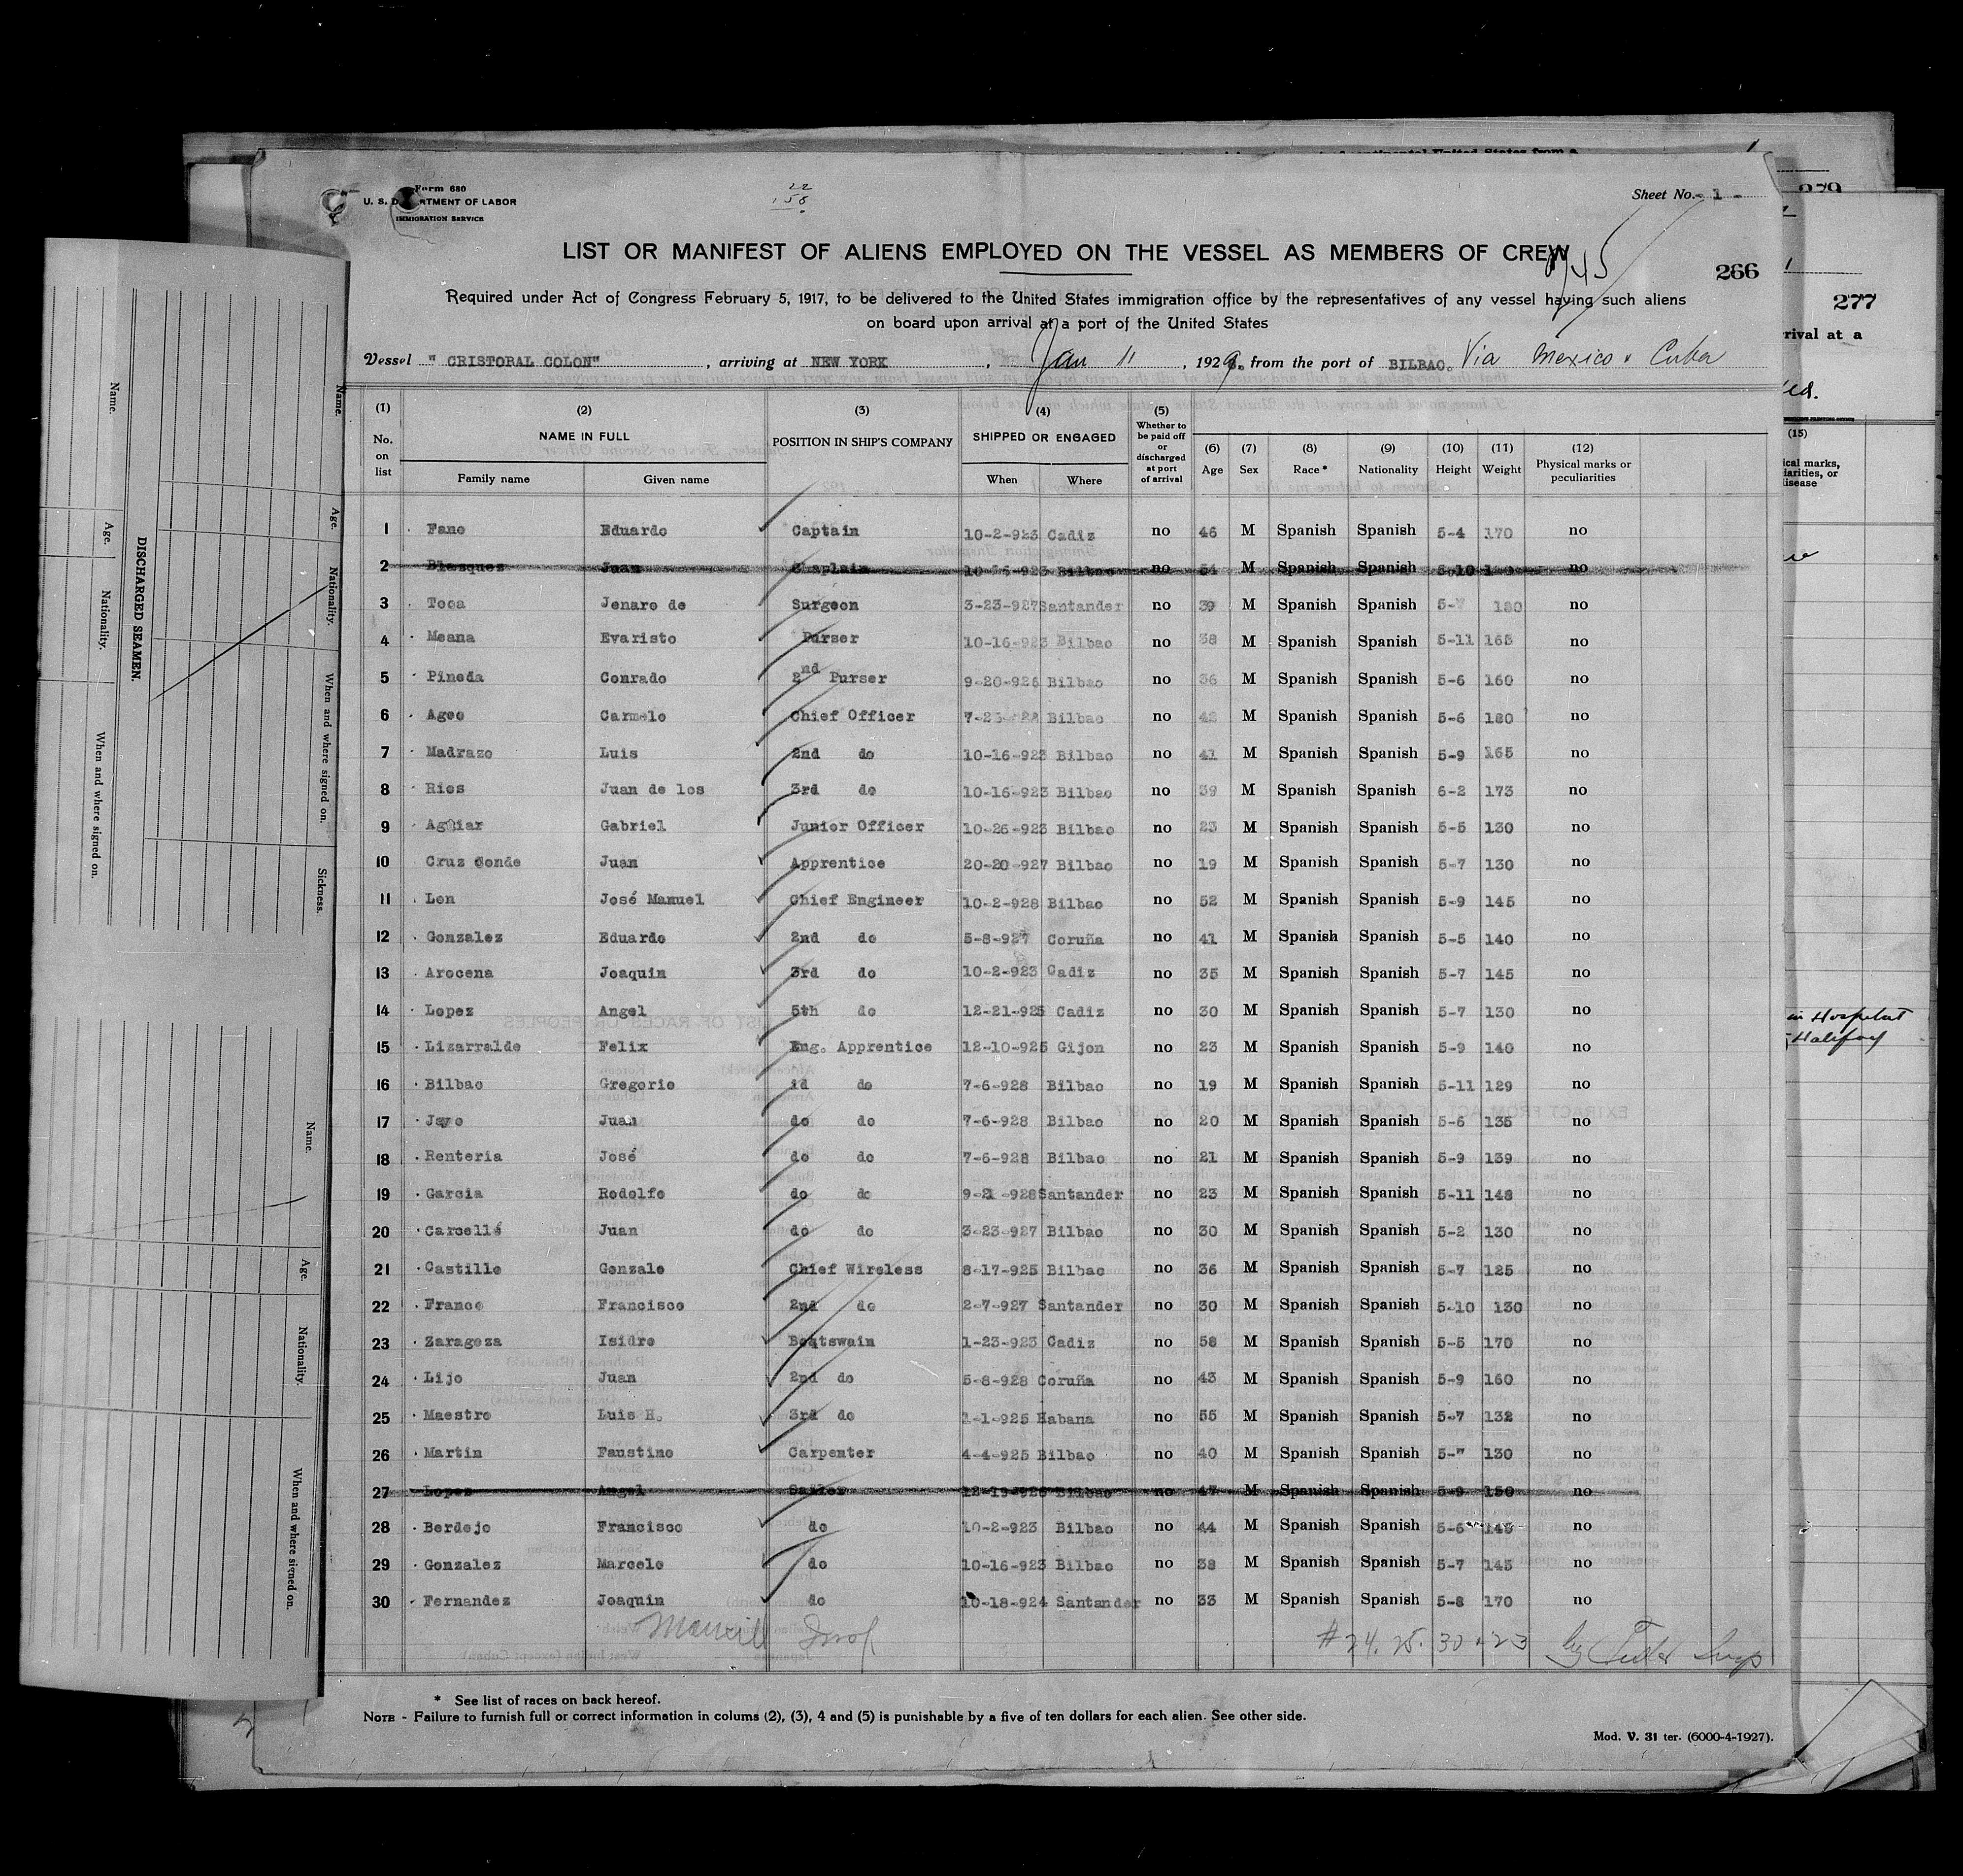 Form 680
U. S. D RTMENT OF LABOR
IMMIGRATION SERVICE
22
158
Sheet No. - 1 -
LIST OR MANIFEST OF ALIENS EMPLOYED ON THE VESSEL AS MEMBERS OF CREW
266
Required under Act of Congress February 5, 1917, to be delivered to the United States immigration office by the representatives of any vessel having such aliens
on board upon arrival at a port of the United States
Vessel " CRISTOBAL COLON" , arriving at NEW YORK , Jan 11 , 1929. from the port of BILBAO. Via Mexico & Cuba
(1) No. on list (2) NAME IN FULL Family name Given name (3) POSITION IN SHIP'S COMPANY (4) SHIPPED OR ENGAGED When Where (5) Whether to be paid off or discharged at port of arrival (6) Age (7) Sex (8) Race* (9) Nationality (10) Height (11) Weight (12) Physical marks or peculiarities
1 Fano Eduardo Captain 10-2-923 Cadiz no 46 M Spanish Spanish 5-4 170 no
2 Blasquez Juan Chaplain 10-16-923 Bilbao no 54 M Spanish Spanish 5-10 no
3 Toca Jenaro de Surgeon 3-23-927 Santander no 39 M Spanish Spanish 5- 180 no
4 Meana Evaristo Purser 10-16-923 Bilbao no 38 M Spanish Spanish 5-11 165 no
5 Pineda Conrado 2nd Purser 9-20-926 Bilbao no 36 M Spanish Spanish 5-6 160 no
6 Ageo Carmelo Chief Officer Bilbao no 42 M Spanish Spanish 5-6 180 no
7 Madrazo Luis 2nd do 10-16-923 Bilbao no 41 M Spanish Spanish 5-9 165 no
8 Rios Juan de los 3rd do 10-16-923 Bilbao no 39 M Spanish Spanish 6-2 173 no
9 Aguiar Gabriel Junior Officer 10-26-923 Bilbao no 23 M Spanish Spanish 5-5 130 no
10 Cruz Conde Juan Apprentice 20-20-927 Bilbao no 19 M Spanish Spanish 5-7 130 no
11 Lon José Manuel Chief Engineer 10-2-928 Bilbao no 52 M Spanish Spanish 5-9 145 no
12 Gonzalez Eduardo 2nd do 5-8-927 Coruña no 41 M Spanish Spanish 5-5 140 no
13 Arocena Joaquin 3rd do 10-2-923 Cadiz no 35 M Spanish Spanish 5-7 145 no
14 Lopez Angel 5th do 12-21-925 Cadiz no 30 M Spanish Spanish 5-7 130 no
15 Lizarralde Felix Eng. Apprentice 12-10-925 Gijon no 23 M Spanish Spanish 5-9 140 no
16 Bilbao Gregorio id do 7-6-928 Bilbao no 19 M Spanish Spanish 5-11 129 no
17 Jayo Juan do do 7-6-928 Bilbao no 20 M Spanish Spanish 5-6 135 no
18 Renteria José do do 7-6-928 Bilbao no 21 M Spanish Spanish 5-9 139 no
19 Garcia Rodolfo do do 9-21-928 Santander no 23 M Spanish Spanish 5-11 148 no
20 Carcellé Juan do do 3-23-927 Bilbao no 30 M Spanish Spanish 5-2 130 no
21 Castillo Gonzalo Chief Wireless 8-17-925 Bilbao no 36 M Spanish Spanish 5-7 125 no
22 Franco Francisco 2nd do 2-7-927 Santander no 30 M Spanish Spanish 5-10 130 no
23 Zaragoza Isidro Boatswain 1-23-923 Cadiz no 58 M Spanish Spanish 5-5 170 no
24 Lijo Juan 2nd do 5-8-928 Coruña no 43 M Spanish Spanish 5-9 160 no
25 Maestro Luis H. 3rd do 1-1-925 Habana no 55 M Spanish Spanish 5-7 132 no
26 Martin Faustino Carpenter 4-4-925 Bilbao no 40 M Spanish Spanish 5-7 130 no
27 Lopez Angel Sailor 12-19-928 Bilbao no 47 M Spanish Spanish 5-9 150 no
28 Berdejo Francisco do 10-2-923 Bilbao no 44 M Spanish Spanish 5-6 145 no
29 Gonzalez Marcelo do 10-16-923 Bilbao no 38 M Spanish Spanish 5-7 145 no
30 Fernandez Joaquin do 10-18-924 Santander no 33 M Spanish Spanish 5-8 170 no
# 24. 25. 30 + 23
* See list of races on back hereof.
NOTE - Failure to furnish full or correct information in colums (2), (3), 4 and (5) is punishable by a five of ten dollars for each alien. See other side.
Mod. V. 31 ter. (6000-4-1927).
DISCHARGED SEAMEN.
Name. Age. Nationality. When and where signed on. Sickness.
Name. Age. Nationality. When and where signed on.
Name. Age. Nationality. When and where signed on.
279
277
rrival at a
(15)
ical marks,
iarities, or
disease
in Hospital
Halifax